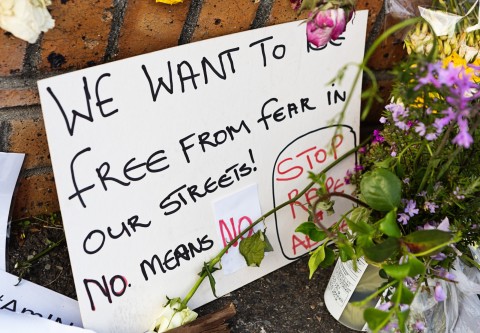 WE WANT TO BE
FREE FROM FEAR IN
OUR STREETS!
NO. MEANS NO.
STOP
RAPE